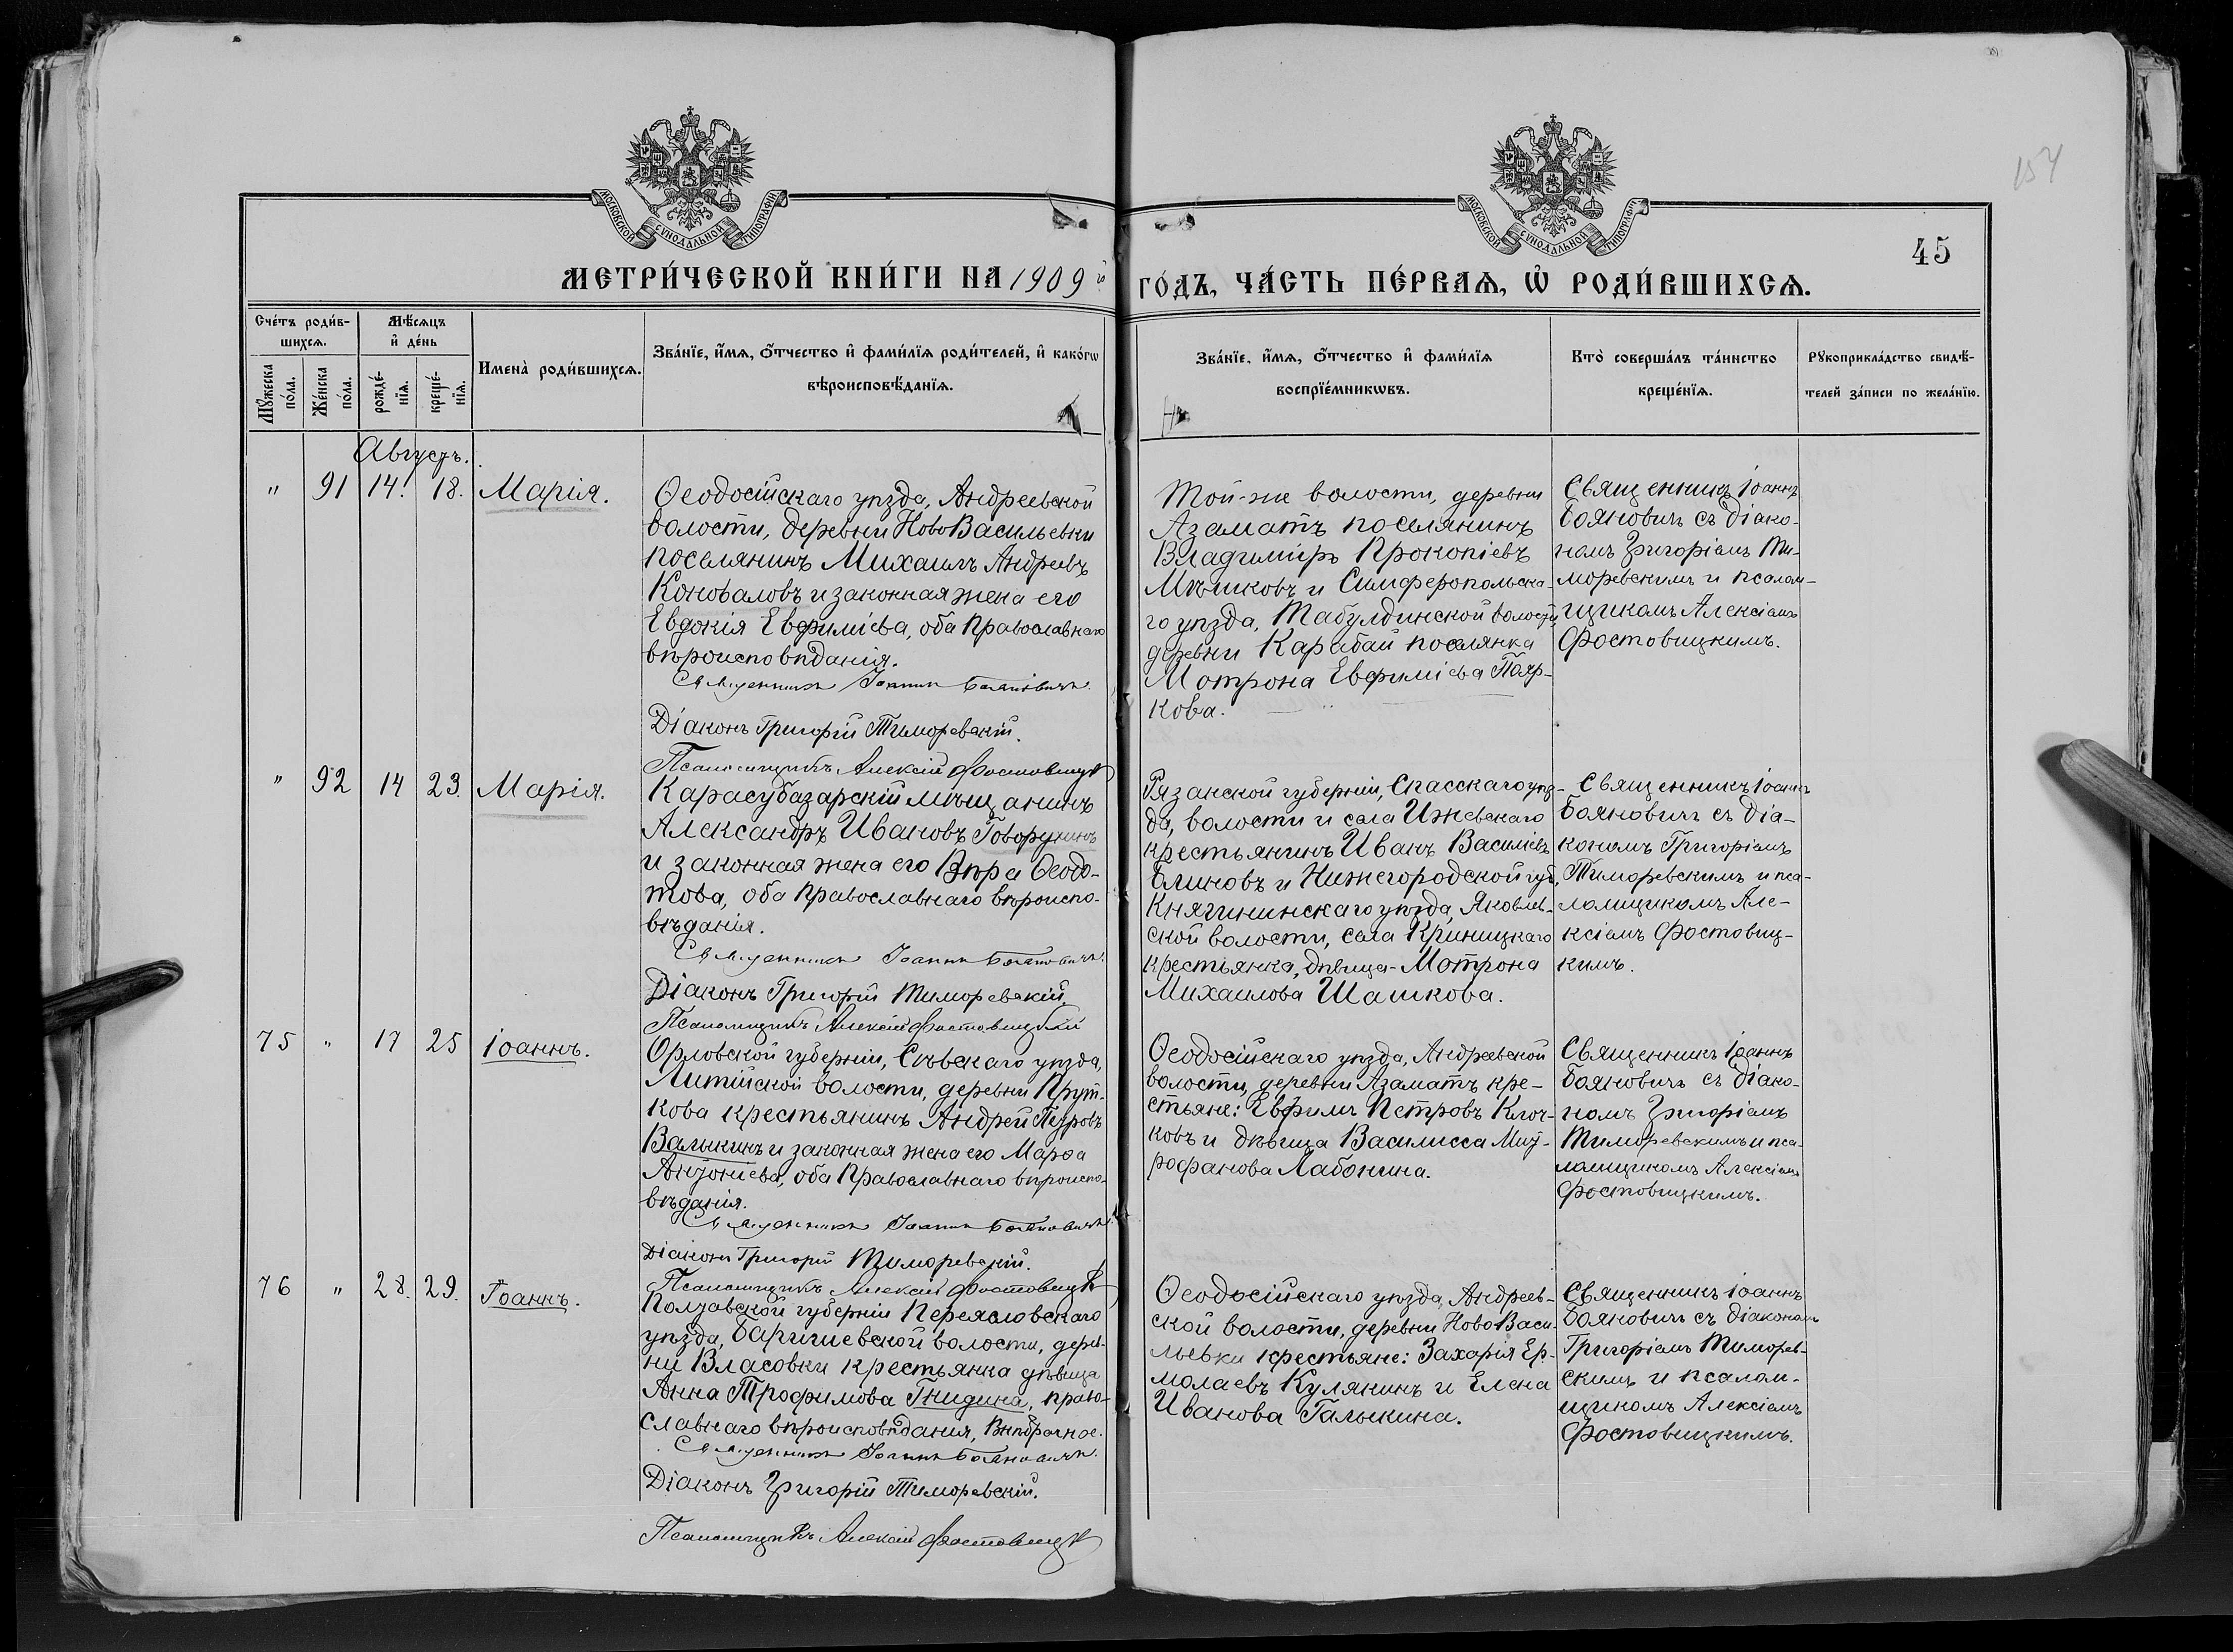 154
МОСКОВСКОЙ СѴНОДАЛЬНОЙ ТИПОГРАФІИ
МОСКОВСКОЙ СѴНОДАЛЬНОЙ ТИПОГРАФІИ
45
МЕТРИ́ЧЕСКОЙ КНИ́ГИ НА 1909 й
ГО́ДЪ, ЧА́СТЬ ПЕ́РВАѦ, Ѡ҆ РОДИ́ВШИХСѦ.
Сче́тъ роди́в-
шихсѧ.
Мꙋ́жеска по́ла.
Же́нска по́ла.
Мѣ́сѧцъ
и҆ де́нь
рожде́-
нїѧ.
креще́-
нїѧ.
Имена̀ роди́вшихсѧ.
Зва́нїе, и҆́мѧ, ѻ҆́тчество и҆ фами́лїѧ роди́телей, и҆ како́гѡ
вѣроисповѣ́данїѧ.
Зва́нїе, и҆́мѧ, ѻ҆́тчество и҆ фами́лїѧ
воспрїе́мникѡвъ.
Кто̀ соверша́лъ та́инство
креще́нїѧ.
Рꙋкоприкла́дство свидѣ́-
телей за́писи по жела́нїю.
Августъ.
" 91 14. 18. Марія.
Ѳеодосійскаго уѣзда, Андреевской
волости, деревни НовоВасильевки
поселянинъ Михаилъ Андреевъ
Коноваловъ и законная жена его
Евдокія Евфиміева, оба Православнаго
вѣроисповѣданія.
Священникъ Іоаннъ Бояновичъ.
Діаконъ Григорій Тиморевскій.
Псаломщикъ Алексій Фостовицк
Той-же волости, деревни
Азаматъ поселянинъ
Владиміръ Прокопіевъ
Мѣшковъ и Симферопольска-
го уѣзда, Табулдинской волости,
деревни Карабай поселянка
Мотрона Евфиміева Пояр-
кова.
Священникъ Іоаннъ
Бояновичъ съ діако-
номъ Григоріемъ Ти-
моревскимъ и псалом-
щикомъ Алексіемъ
Фостовицкимъ.
" 92 14 23. Марія.
Карасубазарскій мѣщанинъ
Александръ Ивановъ Говорухинъ
и законная жена его Вѣра Ѳеодо-
това, оба Православнаго вѣроиспо-
вѣданія.
Священникъ Іоаннъ Бояновичъ.
Діаконъ Григорій Тиморевскій.
Псаломщикъ Алексій Фостовицкій
Рязанской губерніи, Спасскаго уѣз-
да, волости и села Ижевскаго
крестьянинъ Иванъ Василіевъ
Блиновъ и Нижегородской губ.
Княгининскаго уѣзда, Яковлев-
ской волости, села Криницкаго
крестьянка, дѣвица Мотрона
Михаилова Шашкова.
Священникъ Іоаннъ
Бояновичъ съ діа-
кономъ Григоріемъ
Тиморевскимъ и пса-
ломщикомъ Але-
ксіемъ Фостовиц-
кимъ.
75 " 17 25 Іоаннъ.
Орловской губерніи, Сѣвскаго уѣзда,
Литійской волости, деревни Прут-
кова крестьянинъ Андрей Петровъ
Валыкинъ и законная жена его Марѳа
Антоніева, оба Православнаго вѣроиспо-
вѣданія.
Священникъ Іоаннъ Бояновичъ.
Діаконъ Григорій Тиморевскій.
Псаломщикъ Алексій Фостовицк
Ѳеодосійскаго уѣзда, Андреевской
волости, деревни Азаматъ кре-
стьяне: Евфимъ Петровъ Клоч-
ковъ и дѣвица Василисса Мит-
рофанова Лабонина.
Священникъ Іоаннъ
Бояновичъ съ діако-
номъ Григоріемъ
Тиморевскимъ и пса-
ломщикомъ Алексіемъ
Фостовицкимъ.
76 " 28. 29. Іоаннъ.
Полтавской губерніи Переясловскаго
уѣзда, Баришевской волости, дерев-
ни Власовки крестьянка дѣвица
Анна Трофимова Гнидина, право-
славнаго вѣроисповѣданія, Внѣбрачное.
Священникъ Іоаннъ Бояновичъ.
Діаконъ Григорій Тиморевскій.
Псаломщикъ Алексій Фостовицк
Ѳеодосійскаго уѣзда, Андреев-
ской волости, деревни НовоВаси-
льевки крестьяне: Захарія Ер-
молаевъ Кулякинъ и Елена
Иванова Галыкина.
Священникъ Іоаннъ
Бояновичъ съ діакономъ
Григоріемъ Тиморев-
скимъ и псалом-
щикомъ Алексіемъ
Фостовицкимъ.